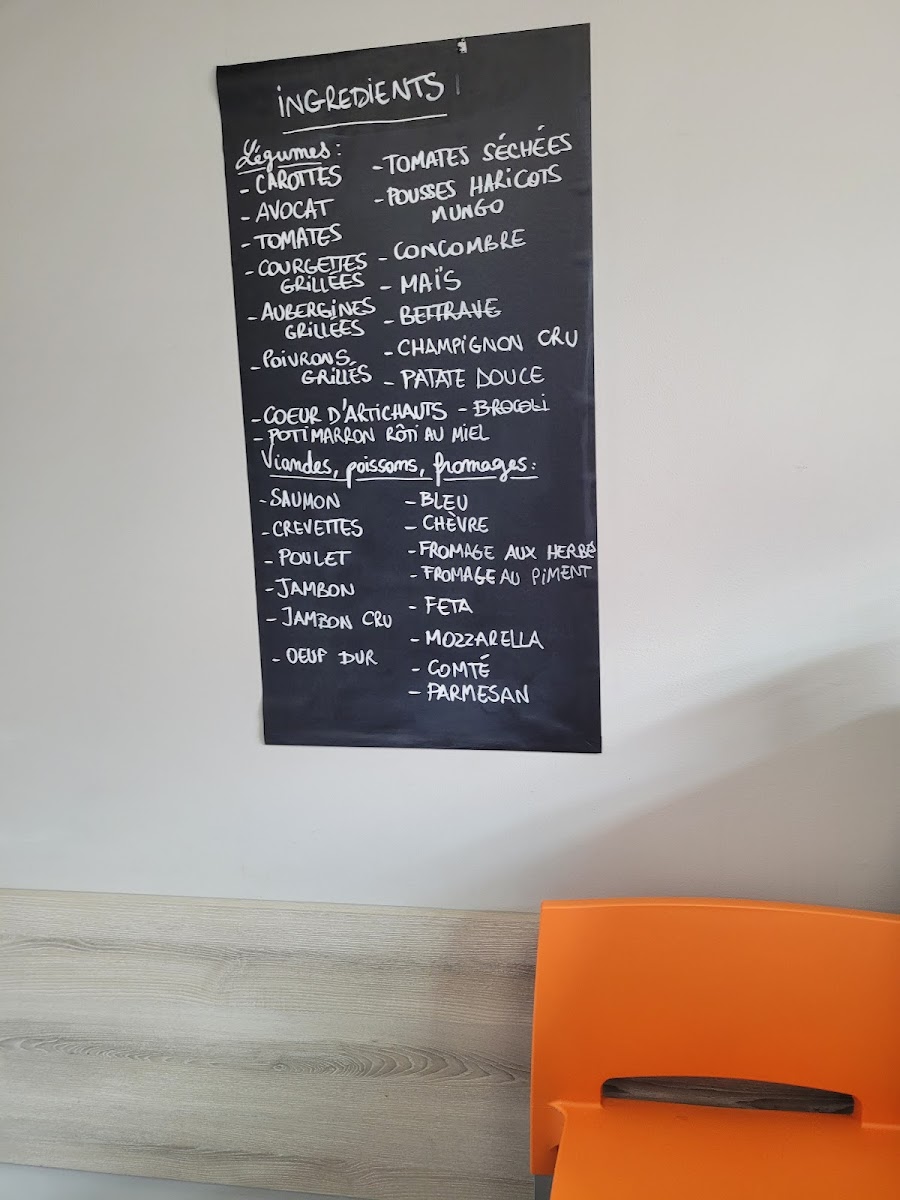 INGREDIENTS
Légumes:
- CAROTTES
- AVOCAT
- TOMATES
- COURGETTES
GRILLÉES
- AUBERGINES
GRILLÉES
- POIVRONS
GRILLÉS
- TOMATES SÉCHÉES
- POUSSES HARICOTS
MUNGO
- CONCOMBRE
- MAÏS
- BETTRAVE
- CHAMPIGNON CRU
- PATATE DOUCE
- COEUR D'ARTICHAUTS - BROCOLI
- POTIMARRON RÔTI AU MIEL
Viandes, poissons, fromages:
- SAUMON
- CREVETTES
- POULET
- JAMBON
- JAMBON CRU
- OEUF DUR
- BLEU
- CHÈVRE
- FROMAGE AUX HERBES
- FROMAGE AU PIMENT
- FETA
- MOZZARELLA
- COMTÉ
- PARMESAN